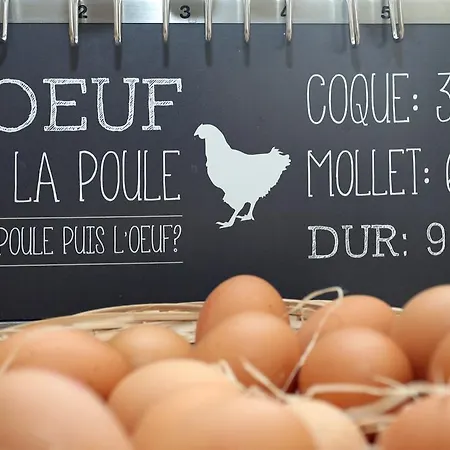 2 3 4 5
OEUF
LA POULE
POULE PUIS L'OEUF?
COQUE: 3
MOLLET:
DUR: 9